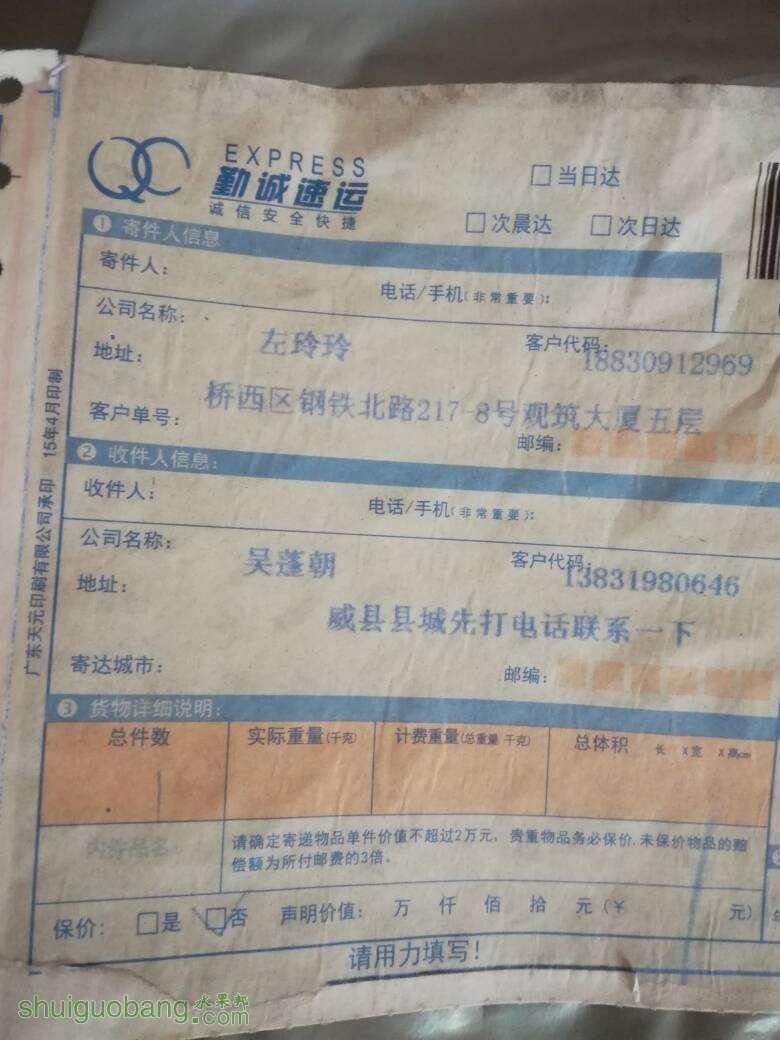 QC EXPRESS
勤诚速运
诚信安全快捷
□当日达
□次晨达 □次日达
① 寄件人信息
寄件人：
电话/手机(非常重要)：
公司名称：
左玲玲
客户代码：
18830912969
地址：
桥西区钢铁北路217-8号观筑大厦五层
客户单号：
邮编：
② 收件人信息：
收件人：
电话/手机(非常重要)：
公司名称：
吴蓬朝
客户代码：
13831980646
地址：
威县县城先打电话联系一下
寄达城市：
邮编：
③ 货物详细说明：
总件数 实际重量(千克) 计费重量(总重量 千克) 总体积 长 X宽 X高cm
内件品名
请确定寄递物品单件价值不超过2万元，贵重物品务必保价.未保价物品的赔
偿额为所付邮费的3倍.
保价：□是 □否 声明价值： 万 仟 佰 拾 元(￥ 元)
请用力填写！
广东天元印刷有限公司承印 15年4月印制
shuiguobang.com
水果邦